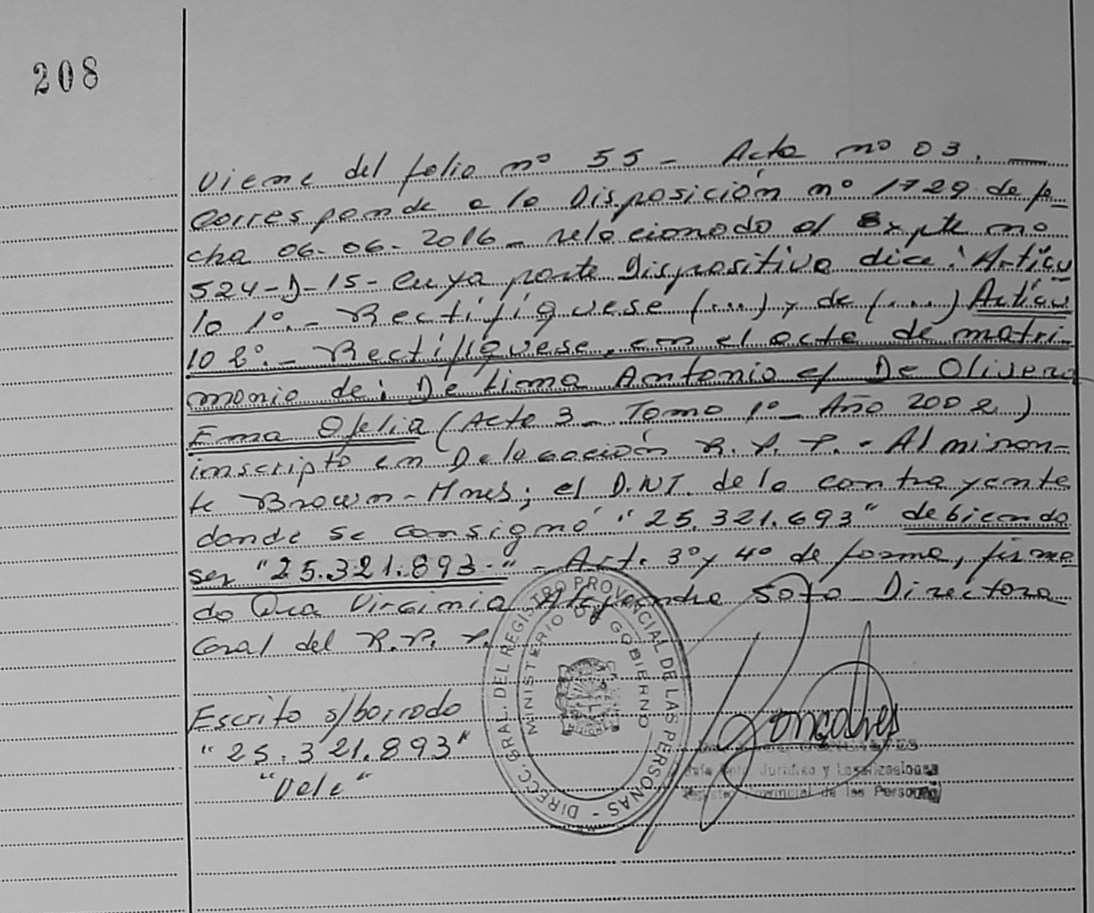 208
Viene del folio nº 55 - Acta nº 03.
Corresponde a la Disposición nº 1729 de fe-
cha 06-06-2016 - relacionado el Expte nº
524-D-15 - cuya parte Dispositiva dice: Artícu
lo 1º.- Rectifíquese (...) y de (....) Artícu
lo 2º.- Rectifíquese, en el acta de matri-
monio de: De Lima Antonio c/ De Olivera
Ema Ofelia (Acta 3 - Tomo 1º - Año 2002)
inscripto en Delegación R.P.P. - Almiran-
te Brown - Mnes; el D.N.I. de la contrayente
donde se consignó "25.321.693" debiendo
ser "25.321.893-" - Art. 3º y 4º de forma, firma
do Dra Virginia Alejandra Soto - Directora
Gral del R.P.P.
Escrito s/borrado
"25.321.893"
"Vale"
DIREC. GRAL. DEL REGISTRO PROVINCIAL DE LAS PERSONAS -
MINISTERIO DE GOBIERNO
MISIONES
Goncalves
Jefe Dpto. Jurídico y Legalizaciones
Registro Provincial de las Personas